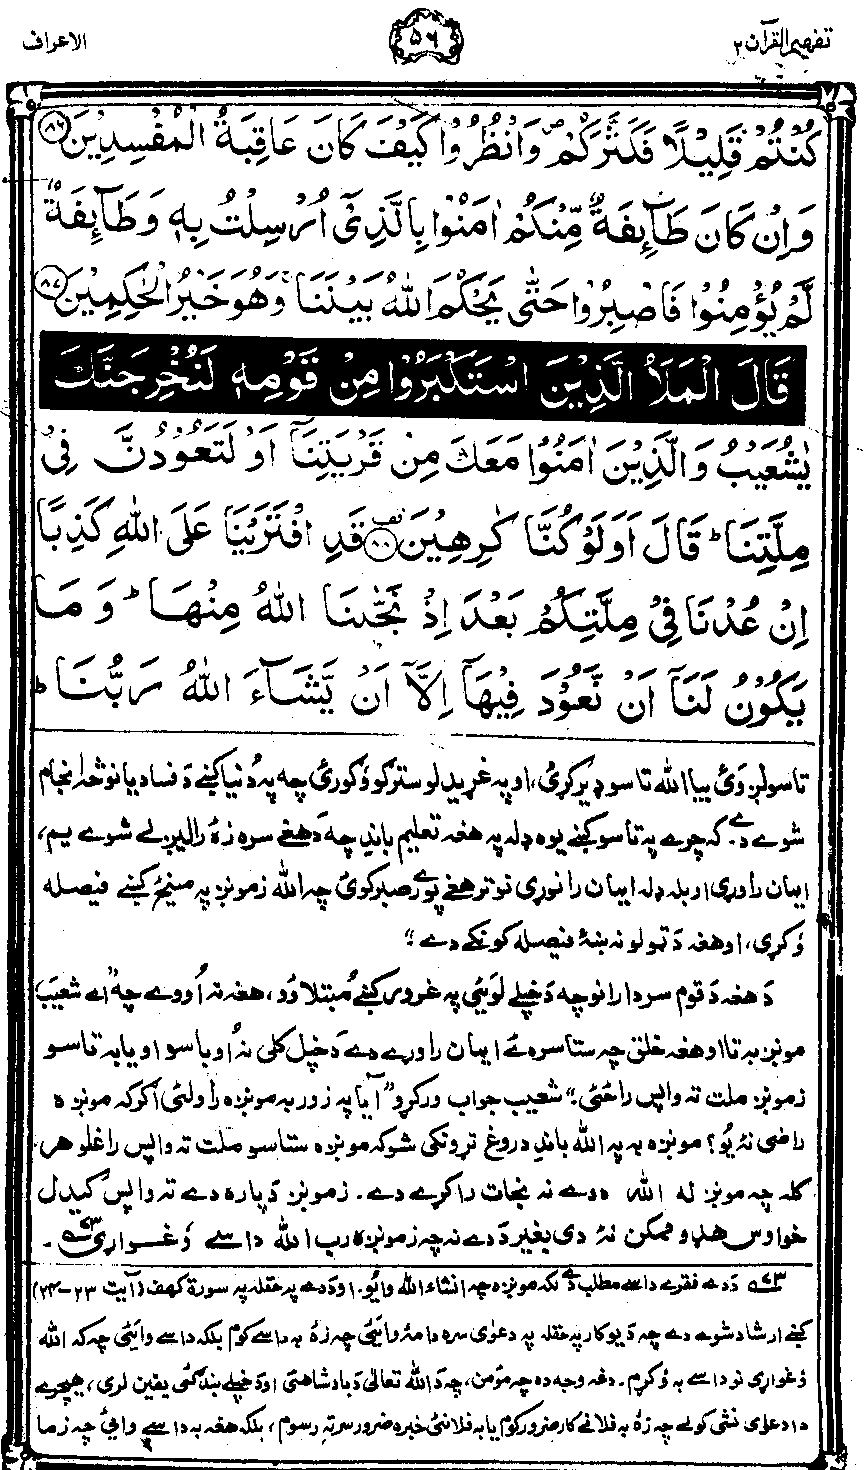 تفهیم القرآن ۲
۵۶
الاعراف
كُنْتُمْ قَلِيْلًا فَكَثَّرَكُمْ ۪ وَانْظُرُوْا كَيْفَ كَانَ عَاقِبَةُ الْمُفْسِدِيْنَ ﴿۸۶﴾
وَاِنْ كَانَ طَآئِفَةٌ مِّنْكُمْ اٰمَنُوْا بِالَّذِيْٓ اُرْسِلْتُ بِهٖ وَطَآئِفَةٌ
لَّمْ يُؤْمِنُوْا فَاصْبِرُوْا حَتّٰى يَحْكُمَ اللّٰهُ بَيْنَنَا ۚ وَهُوَ خَيْرُ الْحٰكِمِيْنَ ﴿۸۷﴾
قَالَ الْمَلَاُ الَّذِيْنَ اسْتَكْبَرُوْا مِنْ قَوْمِهٖ لَنُخْرِجَنَّكَ
يٰشُعَيْبُ وَالَّذِيْنَ اٰمَنُوْا مَعَكَ مِنْ قَرْيَتِنَآ اَوْ لَتَعُوْدُنَّ فِيْ
مِلَّتِنَا ؕ قَالَ اَوَلَوْ كُنَّا كٰرِهِيْنَ قَدِ افْتَرَيْنَا عَلَى اللّٰهِ كَذِبًا
اِنْ عُدْنَا فِيْ مِلَّتِكُمْ بَعْدَ اِذْ نَجّٰىنَا اللّٰهُ مِنْهَا ؕ وَمَا
يَكُوْنُ لَنَآ اَنْ نَّعُوْدَ فِيْهَآ اِلَّآ اَنْ يَّشَآءَ اللّٰهُ رَبُّنَا ؕ
تاسو لږ وئ بیا الله تاسو ډیر کړئ، او په غرید لو سترګو وګورئ چه په دنیا کښے د فساد یانو څه انجام
شوے دے. که چرے په تاسو کښے یوه ډله په هغه تعلیم باندِ چه د هغے سره زهٔ رالیږلے شوے یم،
ایمان راوړی او بله ډله ایمان را نوړی نو تر هغے پورے صبر کوئ چه الله زمونږ په مینځ کښے فیصله
وٗکړی، او هغه د ټمولو نه ښهٔ فیصله کونکے دے ؛"
د هغه د قوم سردارانو چه د خپلے لویئی په غرور کښے مبتلا وُو، هغه نه اُووے چه "اے شعیب
مونږ به تا او هغه خلق چه ستا سره ئے ایمان راوړے دے د خپل کلی نه اُوباسو او یا به تاسو
زمونږ ملت ته واپس راځئی." شعیب جواب ورکړو "آیا په زور به مونږه راولئی اکر که مونږه
راضی نهٔ یُو؟ مونږه به په الله باندِ دروغ تړونکی شو که مونږه ستاسو ملت ته واپس راغلو هر
کله چه مونږ له الله دے نه نجات راکړے دے. زمونږ دپاره دے ته واپس کیدل
خو اوس هډو ممکن نهٔ دی بغیر د دے نه چه زمونږه رب الله داسے وٗغواړی ۷۳ .
۷۳ د دے فقرے داسے مطلب دے لکه مونږه چه انشاء الله وایُو. او د دے په حقله په سورة کهف (آیت ۲۳–۲۴)
کښے ارشاد شوے دے چه د یو کار په حقله په دعوٰی سره دا مهٔ وایئی چه زهٔ به داسے کوم بلکه داسے وایئی چه که الله
وٗغواړی نو داسے به وٗکړم. دغه وجه ده چه مؤمن، چه د الله تعالیٰ د بادشاهئ او د خپلے بندګئ یقین لری، هیچرے
دا دعوٰی نشی کولے چه زهٔ به فلانے کار ضرور کوم یا به فلانئی خبره ضرور سرته رسوم، بلکه هغه به داسے وایئ چه زما